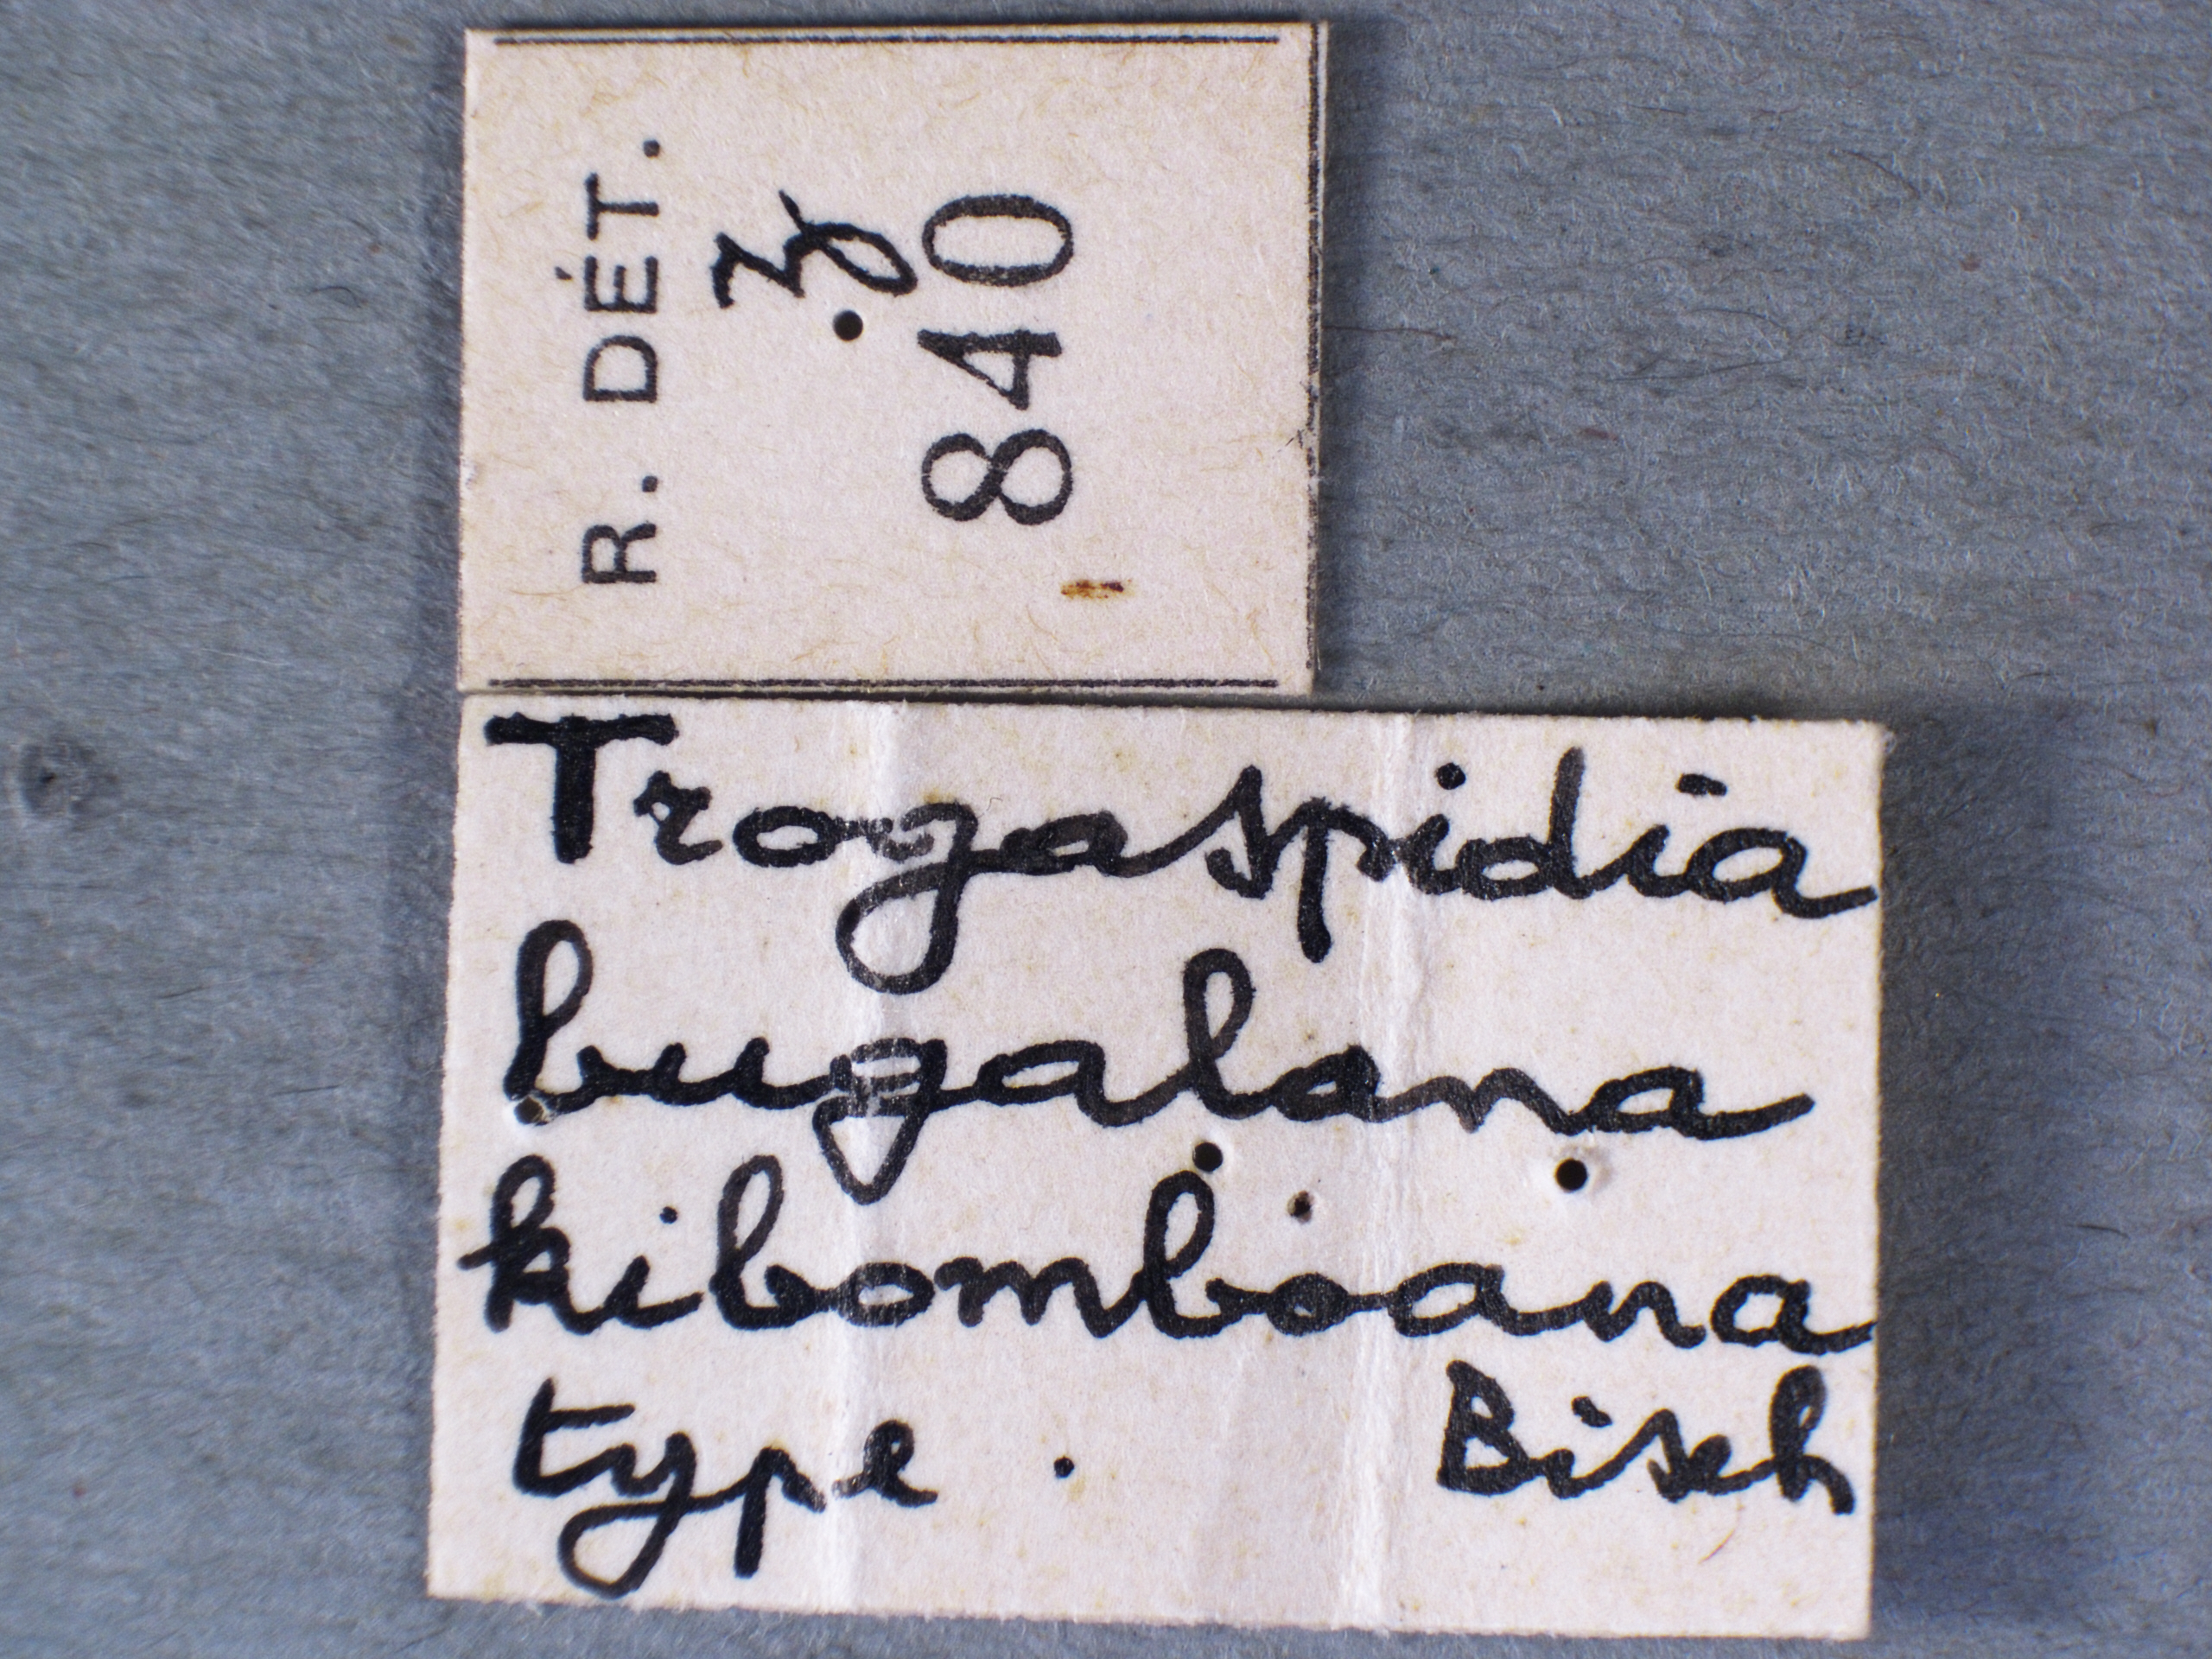 R. DÉT.
840
Trogaspidia
bugalana
kibomboana
type . Bisch